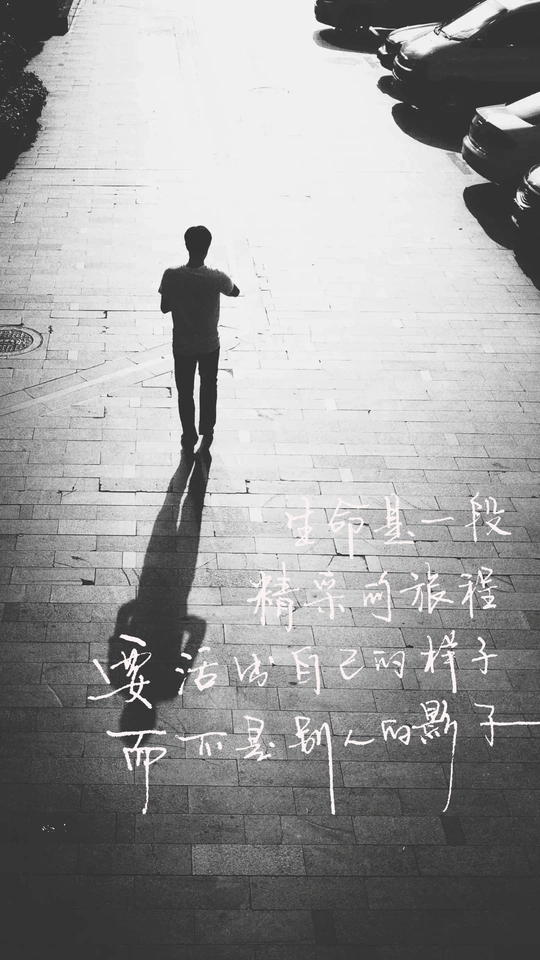 生命是一段
精采的旅程
要活出自己的样子
而不是别人的影子